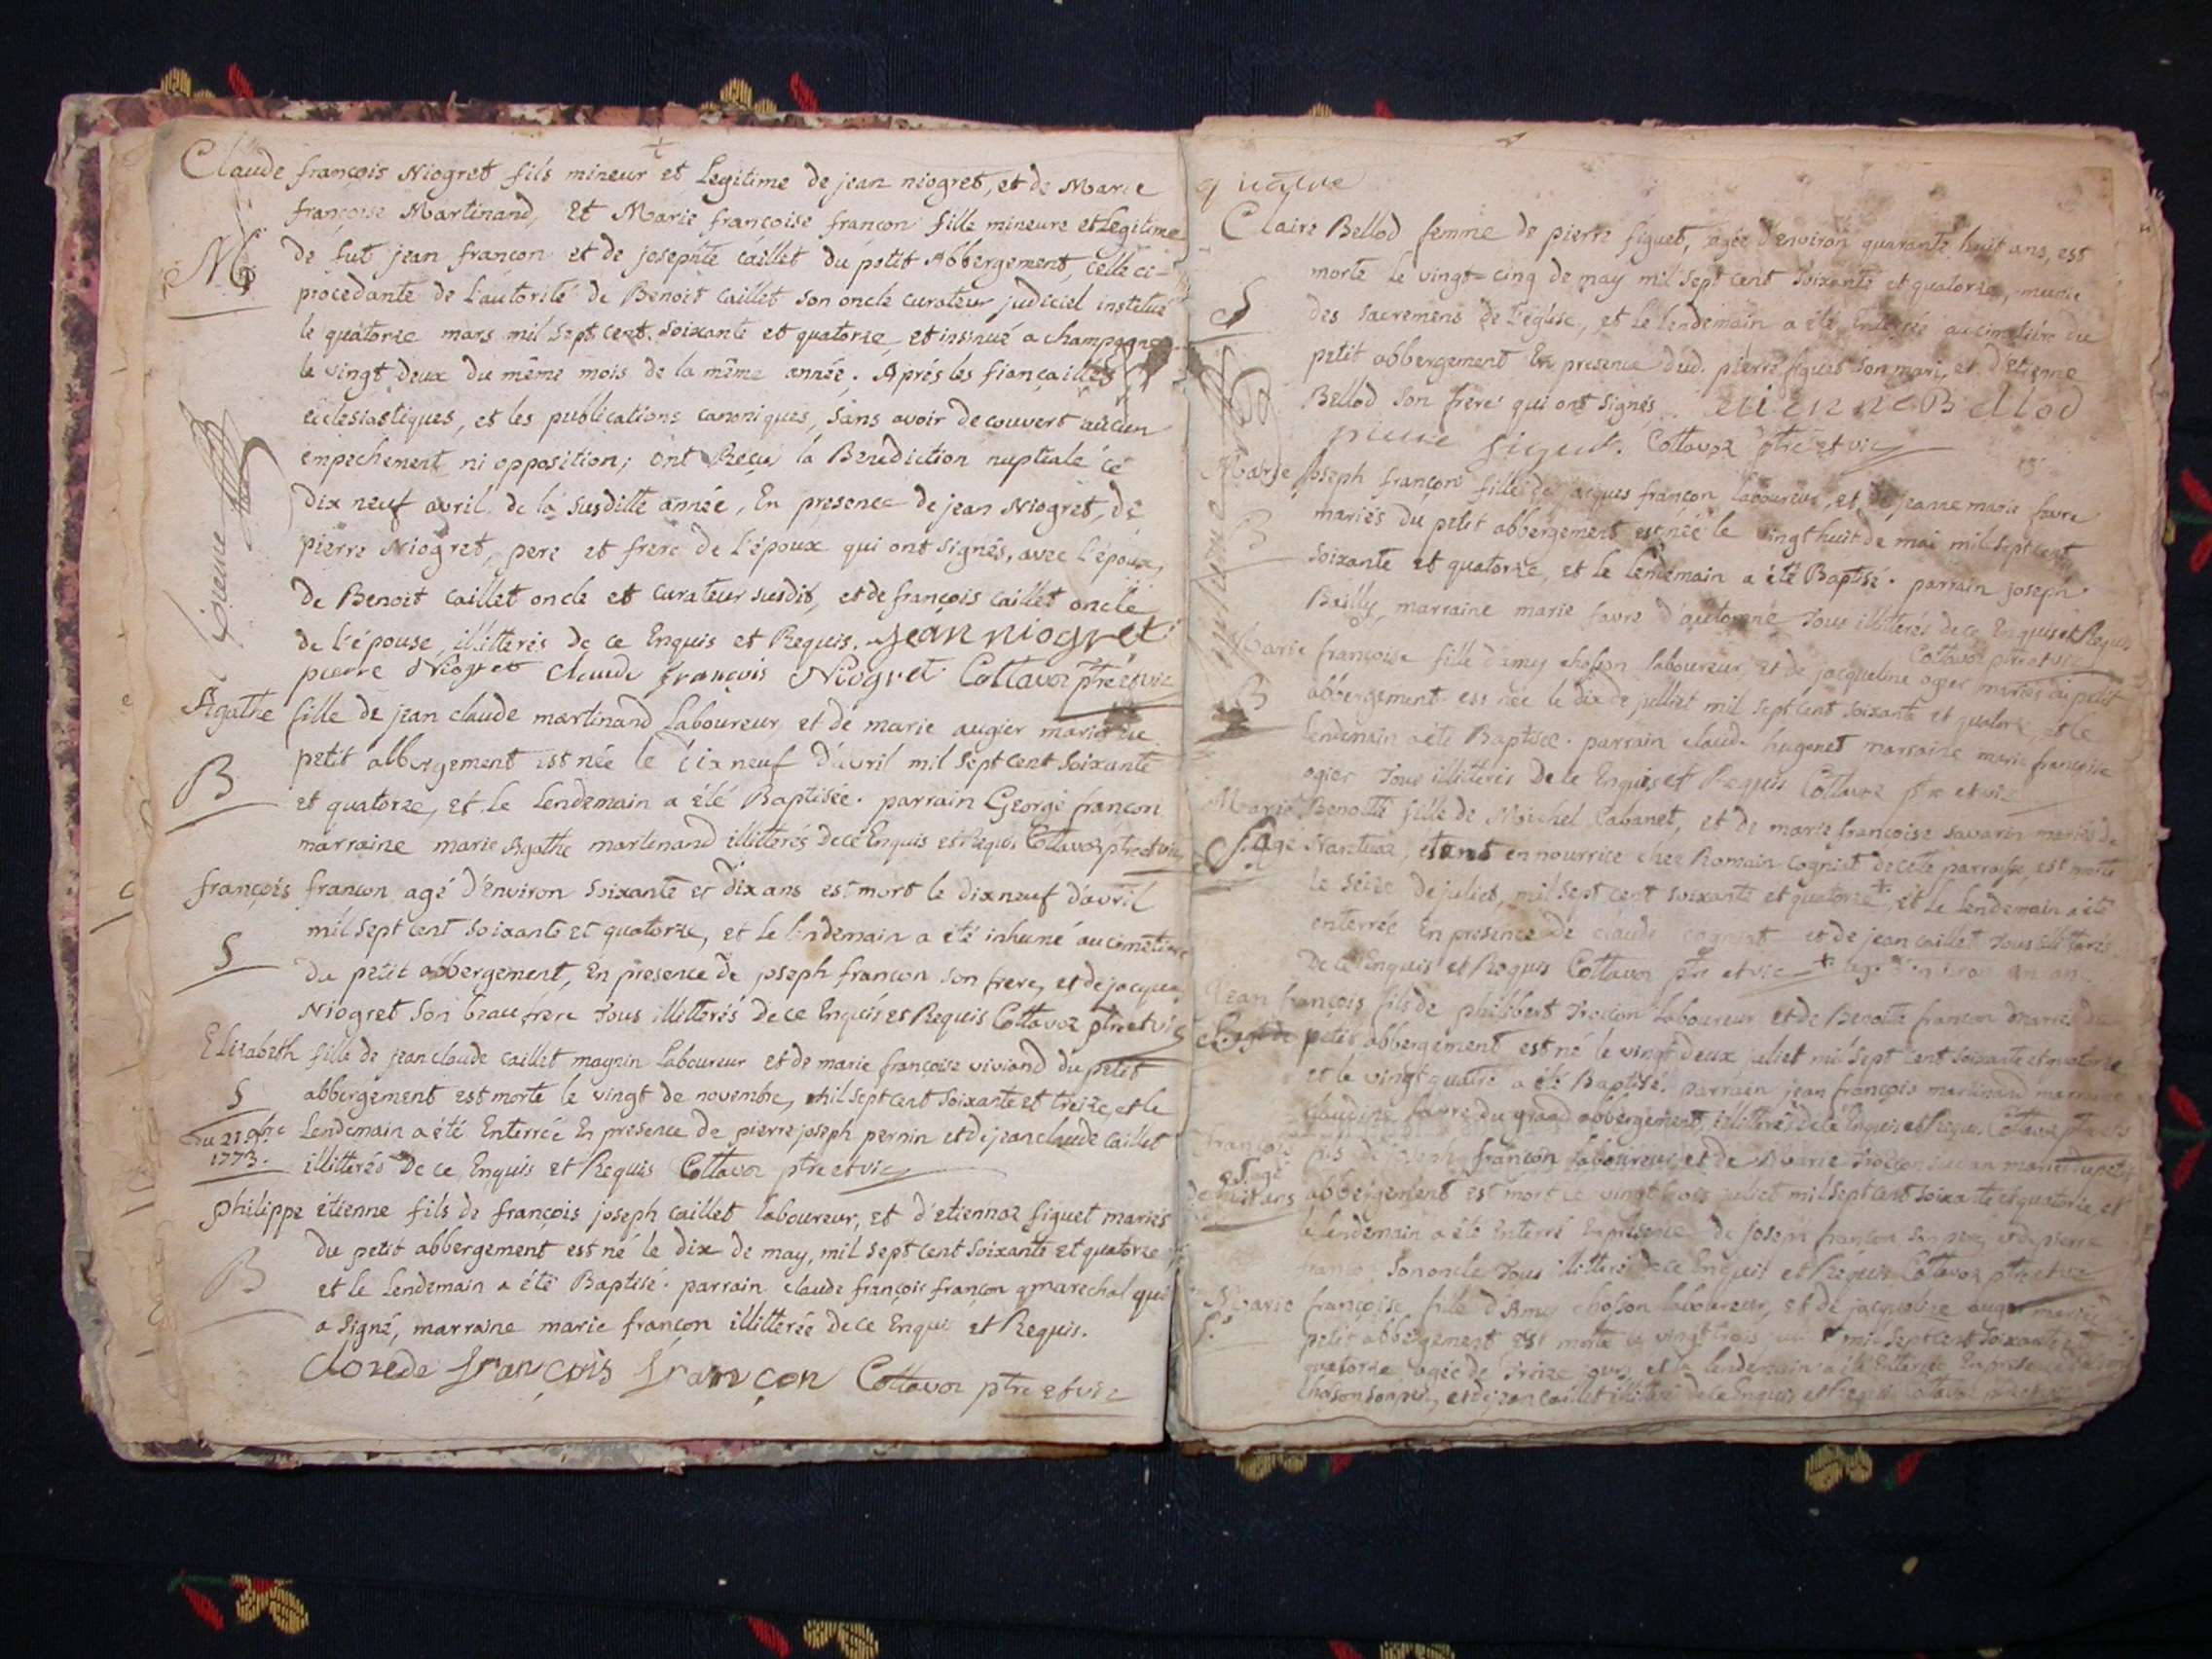 Claude françois Niogret fils mineur et Legitime de jean niogret, et de Marie
françoise Martinand, Et Marie françoise françon fille mineure et Legitime
M
de fut jean françon et de josephte caillet du petit Abbergement, celle ci-
procedante de l'autorité de Benoit caillet son oncle curateur judiciel institué
le quatorze mars mil sept cent soixante et quatorze, et insinué a champagne
le vingt deux du même mois de la même année. Aprés les fiançailles
ecclesiastiques, et les publications canoniques, sans avoir decouvert aucun
empechement ni opposition; ont Reçu la Benediction nuptiale ce
dix neuf avril de la susditte année, En presence de jean Niogret, de
pierre Niogret, pere et frere de l'époux qui ont signés, avec l'époux,
de Benoit caillet oncle et curateur susdit, et de françois caillet oncle
de l'épouse, illitterés de ce Enquis et Requis. jean niogret
pierre Niogret Claude françois Niogret Cottavoz ptre et vic
Agathe fille de jean claude martinand Laboureur, et de marie augier mariés du
B
petit abbergement est née le dix neuf d'avril mil sept cent soixante
et quatorze, et le lendemain a été Baptisée. parrain George françon
marraine marie Agathe martinand illitterés de ce Enquis et Requis Cottavoz ptre et vic
françois françon agé d'environ soixante et dix ans est mort le dix neuf d'avril
S
mil sept cent soixante et quatorze, et le lendemain a été inhumé au cimetiere
du petit abbergement, En presence de joseph françon son frere, et de jacques
Niogret son beau frere tous illitterés de ce Enquis et Requis Cottavoz ptre et vic
Elisabeth fille de jean claude caillet magnin Laboureur et de marie françoise viviand du petit
S
abbergement est morte le vingt de novembre, mil sept cent soixante et treize, et le
du 21 9bre
1773.
Lendemain a été Enterrée En presence de pierre joseph pernin et de jean claude caillet
illitterés de ce Enquis et Requis Cottavoz ptre et vic
philippe etienne fils de françois joseph caillet laboureur, et d'etiennaz figuet mariés
B
du petit abbergement est né le dix de may, mil sept cent soixante et quatorze
et le Lendemain a été Baptisé. parrain claude françois françon marechal qui
a signé, marraine marie françon illitterée de ce Enquis et Requis.
clouede françois françon Cottavoz ptre et vic
Claire Bellod femme de pierre figuet, agée d'environ quarante huit ans, est
S
morte le vingt-cinq de may mil sept cent soixante et quatorze, munie
des sacremens de l'église, et le lendemain a été Enterrée au cimetiere du
petit abbergement En presence dud. pierre figuet son mari, et d'etienne
Bellod son frere qui ont signés. etienne Bellod
pierre figuet. Cottavoz ptre et vic
Marie joseph françon fille de jacques françon laboureur, et de jeanne marie favre
B
mariés du petit abbergement est née le vingt huit de mai mil sept cent
soixante et quatorze, et le lendemain a été Baptisé. parrain joseph
Bailly, marraine marie favre tous illitterés de ce Enquis et Requis
Cottavoz ptre et vic
Marie françoise fille d'amy choson laboureur, et de jacqueline ogier mariés du petit
B
abbergement est née le dix de julliet mil sept cent soixante et quatorze, et le
Lendemain a été Baptisée. parrain claude hugonet marraine marie françoise
ogier tous illitterés De ce Enquis et Requis Cottavoz ptre et vic
Marie Benoitte fille de Michel Cabanet, et de marie françoise savarin mariés de
S
Nantua, étant en nourrice chez Romain cogniat de cete parroisse, est morte
le seize de juliet, mil sept cent soixante et quatorze, et le Lendemain a été
enterrée En presence de claude cogniat et de jean caillet tous illitterés
De ce Enquis et Requis Cottavoz ptre et vic agée d'environ un an.
Jean françois fils de philibert laboureur et de Benoitte françon mariés du
petit abbergement est né le vingt deux juliet mil sept cent soixante et quatorze
et le vingt quatre a été Baptisé. parrain jean françois martinand marraine
claudine favre du grand abbergement, illitterés de ce Enquis et Requis Cottavoz ptre et vic
françois fils de joseph françon laboureur, et de Marie mariés du petit
S. agé
de huit ans
abbergement est mort le vingt trois juliet mil sept cent soixante et quatorze, et
le lendemain a été Enterré En presence de joseph françon son pere, et de pierre
françon son oncle tous illitterés de ce Enquis et Requis Cottavoz ptre et vic
Marie françoise fille d'Amy choson laboureur, et de jacqueline augier mariés
S.
petit abbergement est morte le vingt trois mil sept cent soixante et
quatorze agée de treize jours, et le lendemain a été Enterrée En presence
choson son pere, et de jean caillet illitterés de ce Enquis et Requis Cottavoz ptre et vic